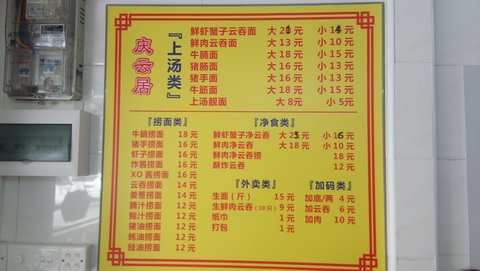 庆云居
『上汤类』
鲜虾蟹子云吞面 大20元 小14元
鲜肉云吞面 大13元 小10元
牛腩面 大18元 小15元
猪肠面 大16元 小13元
猪手面 大16元 小13元
牛筋面 大18元 小15元
上汤靓面 大8元 小5元
『捞面类』
牛腩捞面 18元
猪手捞面 16元
虾子捞面 16元
炸酱捞面 16元
XO酱捞面 16元
云吞捞面 14元
姜葱捞面 14元
腩汁捞面 12元
鲍汁捞面 12元
猪油捞面 12元
蚝油捞面 12元
豉油捞面 12元
『净食类』
鲜虾蟹子净云吞 大23元 小16元
鲜肉净云吞 大18元 小10元
鲜肉净云吞捞 18元
酥炸云吞 12元
『外卖类』
生面(斤) 15元
生鲜肉云吞(10只) 9元
纸巾 1元
打包 1元
『加码类』
加底/两 4元
加云吞 6元
加肉 10元